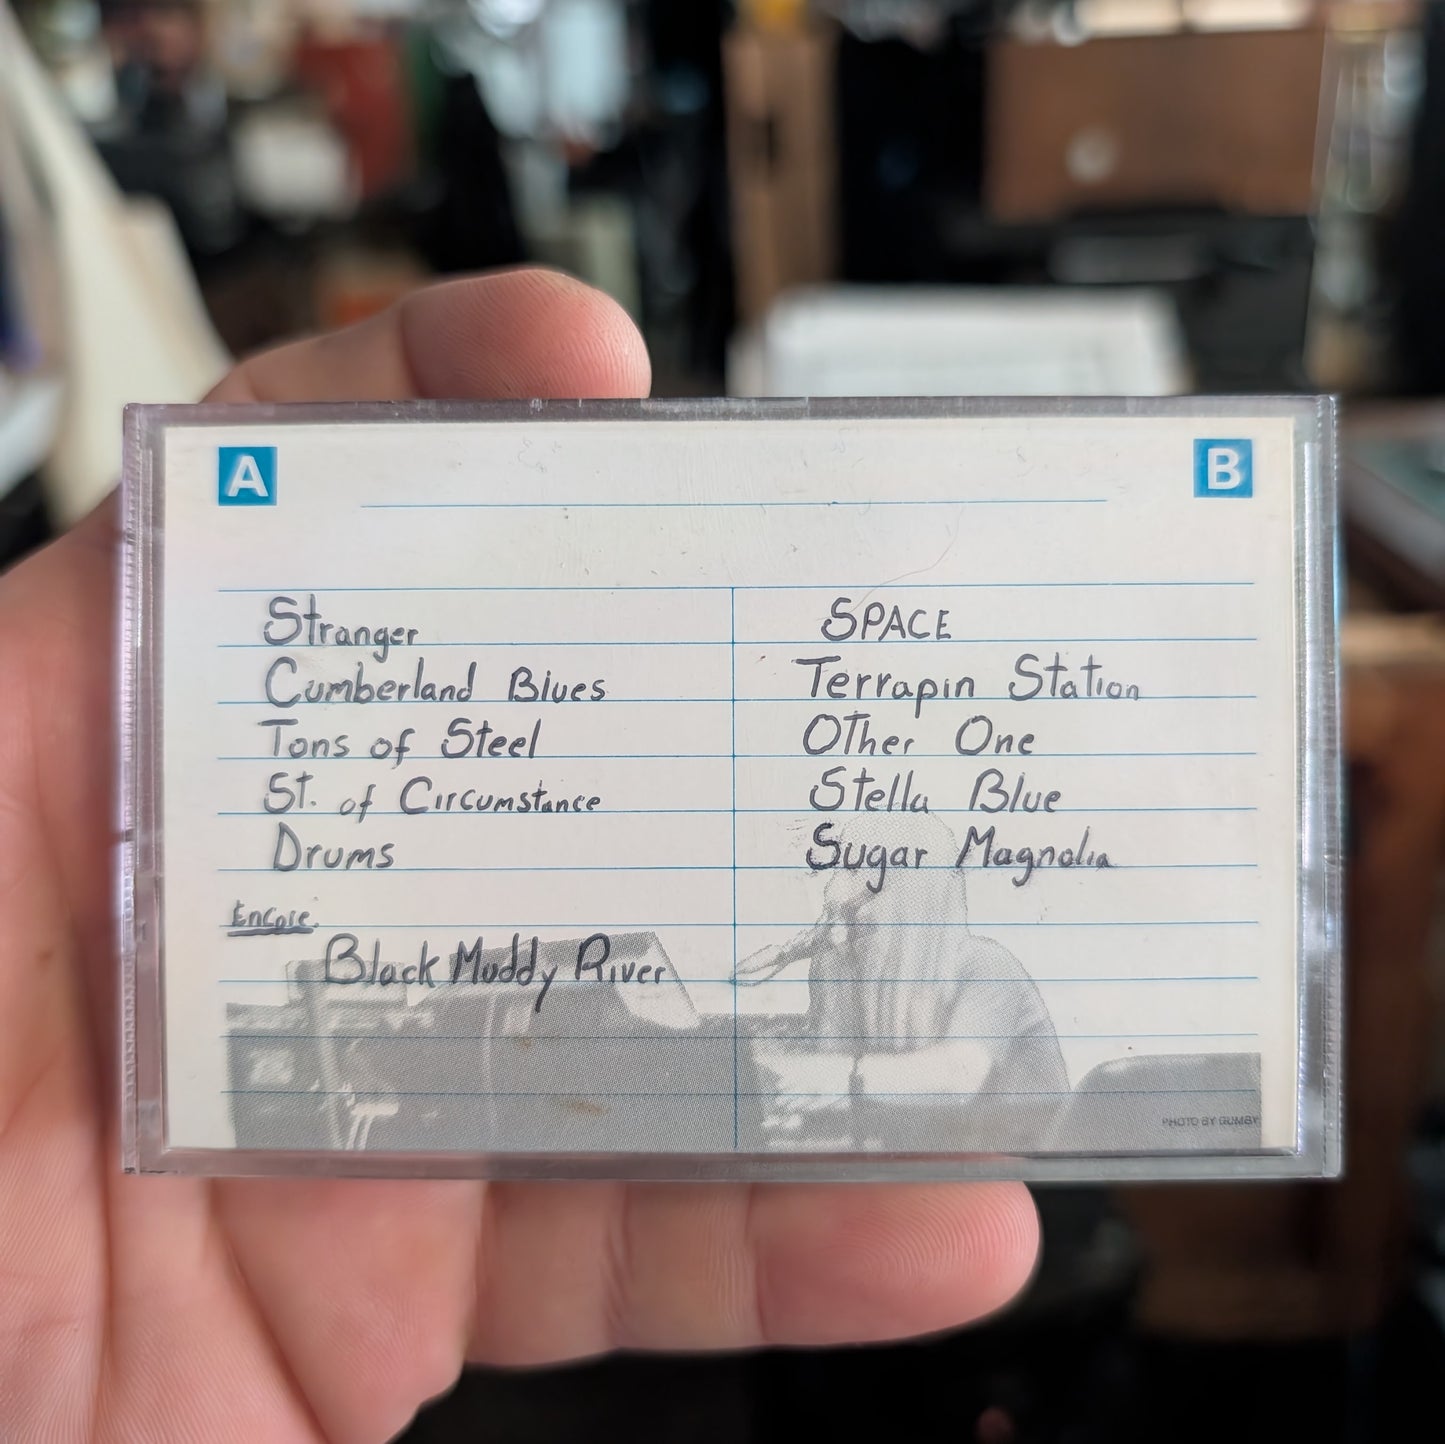 A
B
Stranger
Cumberland Blues
Tons of Steel
St. of Circumstance
Drums
Encore.
Black Muddy River
SPACE
Terrapin Station
Other One
Stella Blue
Sugar Magnolia
PHOTO BY GUMBY